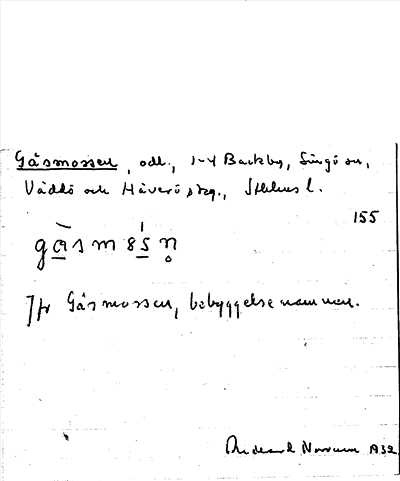 Gåsmossen, odl., 1-4 Backby, Singö sn,
Väddö och Häverö skg., Sthlms l.
155
gàsm8śn̥
Jfr Gåsmossen, bebyggelsenamnen.
Norrum A32